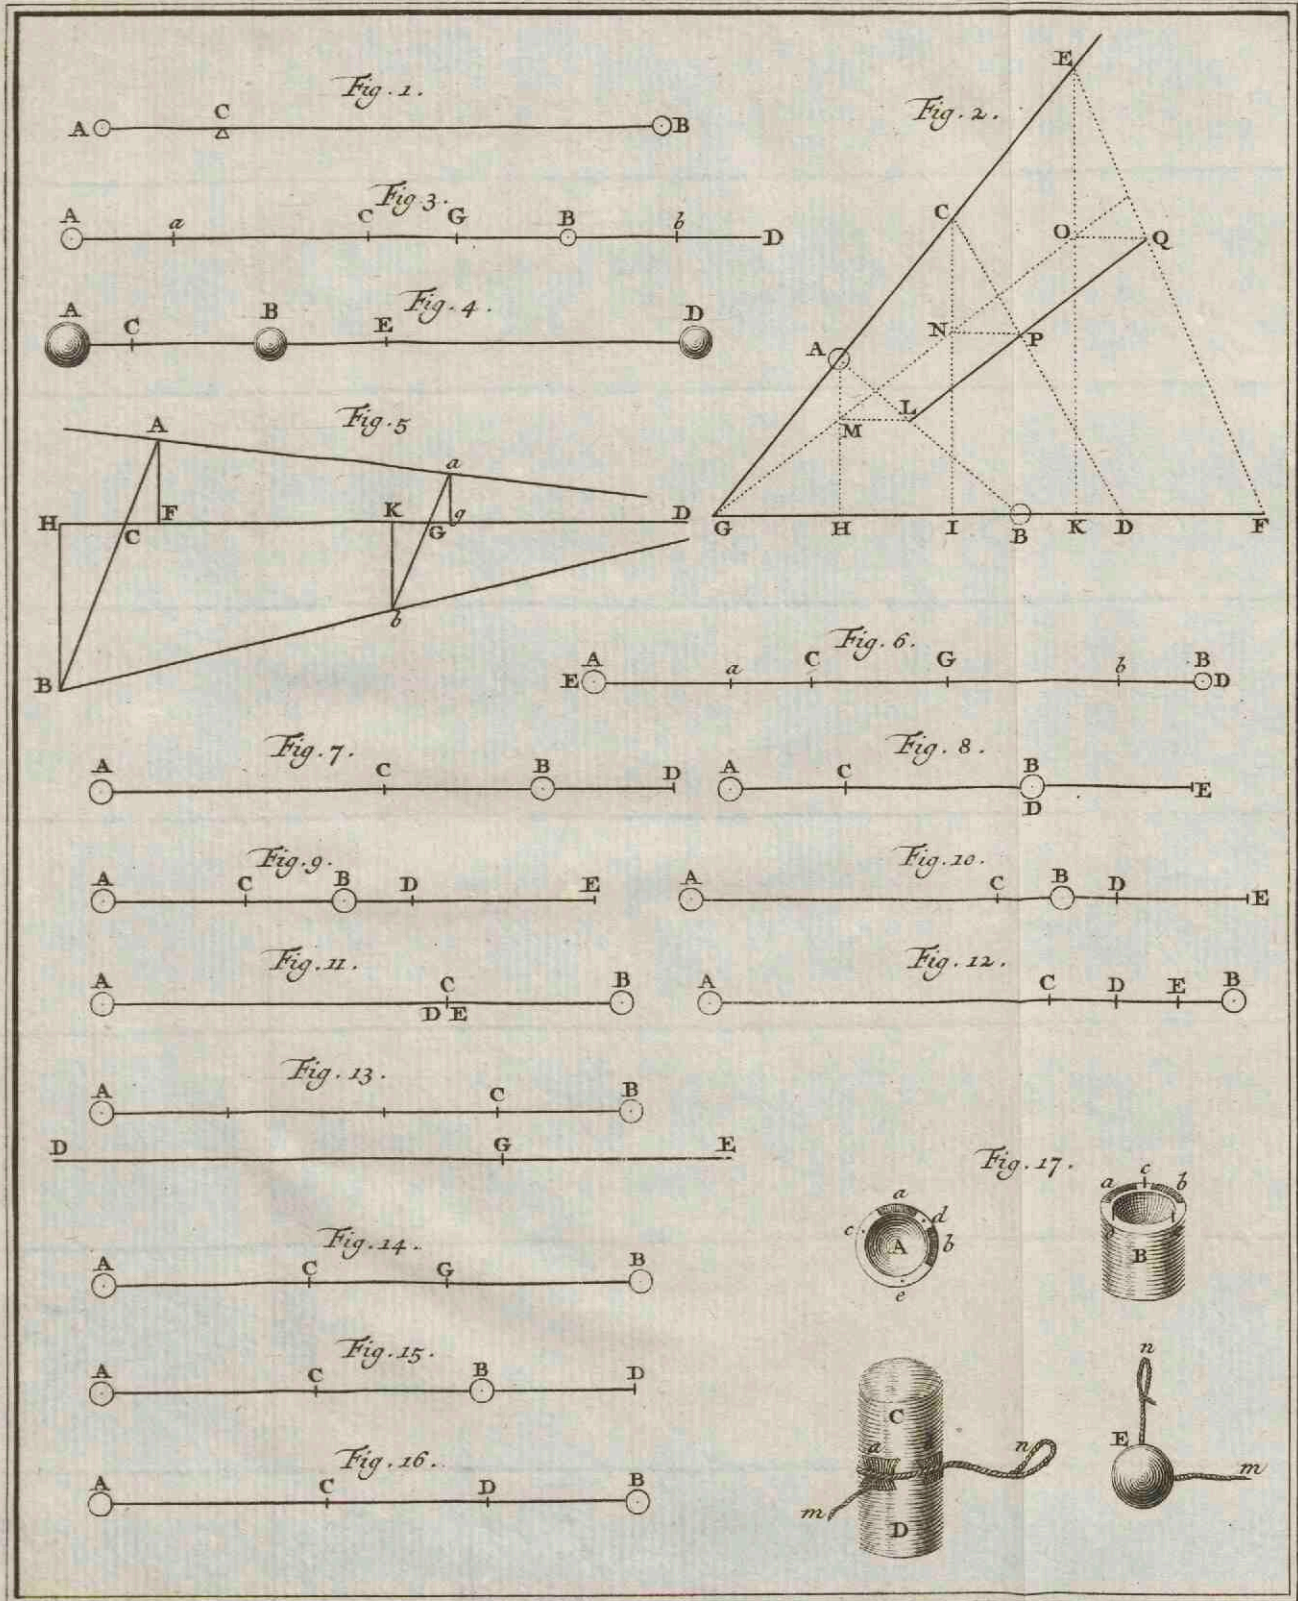 Fig. 1.
A C B
Fig. 2.
E
C O Q
N P
A L
M
G H I B K D F
Fig 3.
A a C G B b D
Fig. 4.
A C B E D
Fig. 5
A a
H F K g D
C G
b
B
Fig. 6.
A a C G b B
E D
Fig. 7.
A C B D
Fig. 8.
A C B E
D
Fig. 9.
A C B D E
Fig. 10.
A C B D E
Fig. 11.
A C B
D E
Fig. 12.
A C D E B
Fig. 13.
A C B
D G E
Fig. 14.
A C G B
Fig. 15.
A C B D
Fig. 16.
A C D B
Fig. 17.
a
c d
A b
e
a c b
B
C
a n
m
D
n
E
m